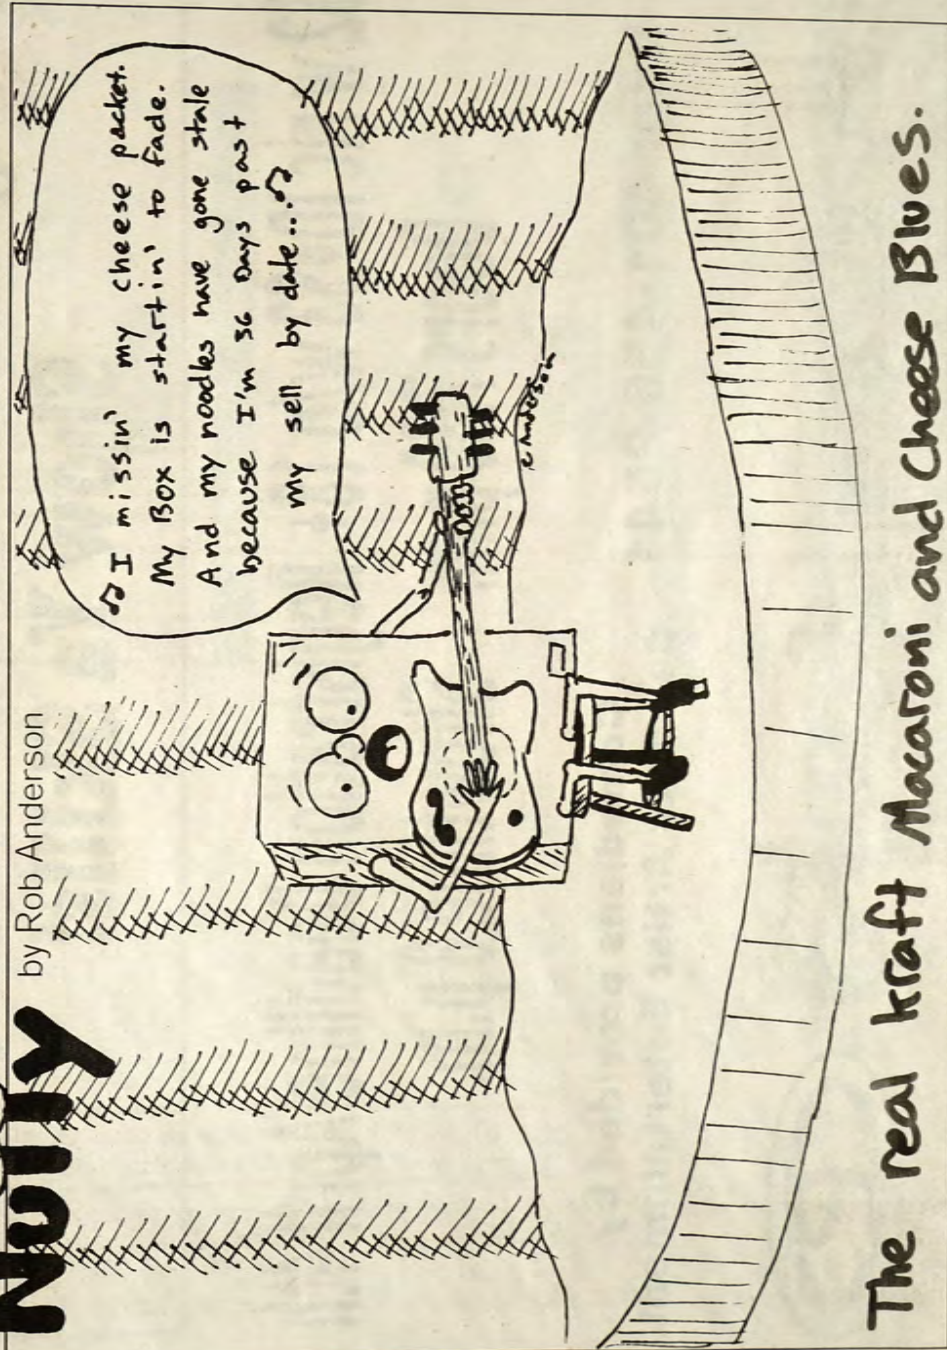 by Rob Anderson
♫ I missin' my cheese packet.
My Box is startin' to fade.
And my noodles have gone stale
because I'm 36 Days past
my sell by date...♫
R Anderson
The real kraft Macaroni and Cheese Blues.